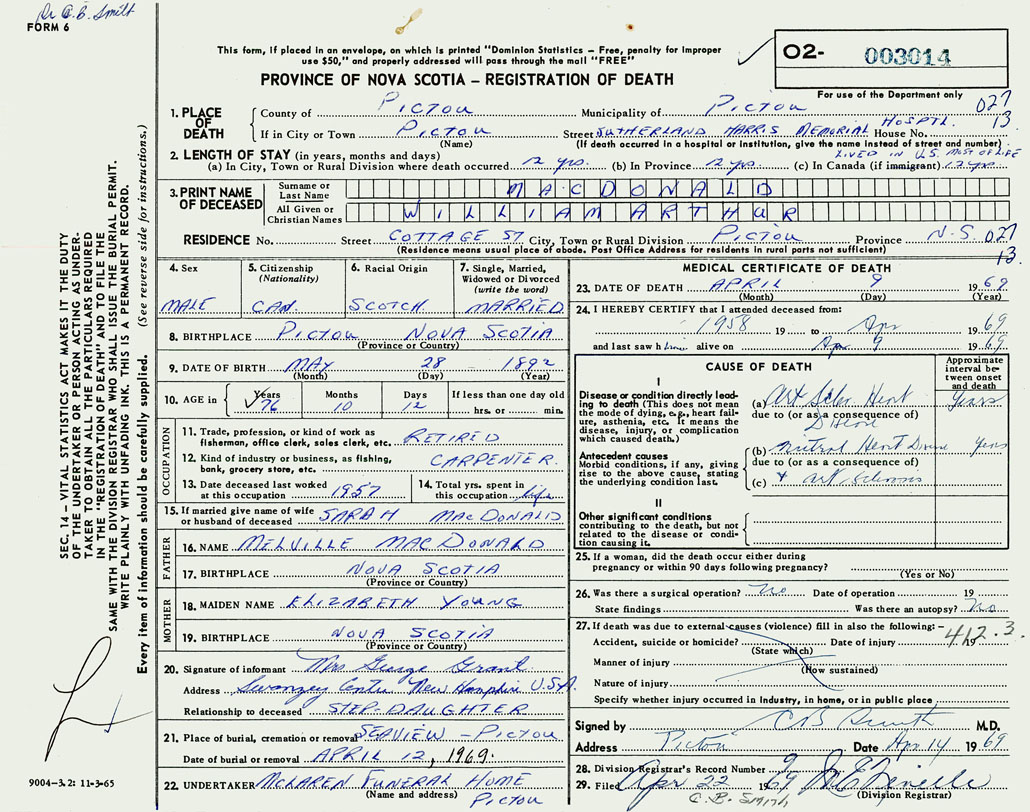 Dr C.B. Smith
FORM 6
This form, if placed in an envelope, on which is printed "Dominion Statistics – Free, penalty for improper
use $50," and properly addressed will pass through the mail "FREE"
O2- 003014
For use of the Department only
PROVINCE OF NOVA SCOTIA – REGISTRATION OF DEATH
027
13.
1. PLACE OF DEATH
County of PICTOU Municipality of PICTOU
If in City or Town PICTOU Street SUTHERLAND HARRIS MEMORIAL HOSPTL. House No.
(Name) (If death occurred in a hospital or institution, give the name instead of street and number)
2. LENGTH OF STAY (in years, months and days) LIVED IN U.S. MOST OF LIFE
(a) In City, Town or Rural Division where death occurred 12 yrs. (b) In Province 12 yrs. (c) In Canada (if immigrant) 12 yrs.
3. PRINT NAME OF DECEASED
Surname or Last Name MACDONALD
All Given or Christian Names WILLIAM ARTHUR
RESIDENCE No. Street COTTAGE ST. City, Town or Rural Division PICTOU Province N.S. 027
(Residence means usual place of abode. Post Office Address for residents in rural parts not sufficient) 13.
4. Sex
MALE
5. Citizenship (Nationality)
CAN.
6. Racial Origin
SCOTCH
7. Single, Married, Widowed or Divorced (write the word)
MARRIED
8. BIRTHPLACE PICTOU NOVA SCOTIA
(Province or Country)
9. DATE OF BIRTH MAY 28 1892
(Month) (Day) (Year)
10. AGE in Years 76 Months 10 Days 12 If less than one day old
hrs. or min.
OCCUPATION
11. Trade, profession, or kind of work as fisherman, office clerk, sales clerk, etc. RETIRED
12. Kind of industry or business, as fishing, bank, grocery store, etc. CARPENTER.
13. Date deceased last worked at this occupation 1957
14. Total yrs. spent in this occupation life
15. If married give name of wife or husband of deceased SARAH MACDONALD
FATHER
16. NAME MELVILLE MACDONALD
17. BIRTHPLACE NOVA SCOTIA
(Province or Country)
MOTHER
18. MAIDEN NAME ELIZABETH YOUNG
19. BIRTHPLACE NOVA SCOTIA
(Province or Country)
20. Signature of informant Mrs George Grant
Address Swanzey Centre New Hampshire U.S.A.
Relationship to deceased STEP-DAUGHTER
21. Place of burial, cremation or removal SEAVIEW – PICTOU
Date of burial or removal APRIL 12, 1969.
22. UNDERTAKER McLAREN FUNERAL HOME
(Name and address) PICTOU
MEDICAL CERTIFICATE OF DEATH
23. DATE OF DEATH APRIL 9 1969
(Month) (Day) (Year)
24. I HEREBY CERTIFY that I attended deceased from:
1958 19 to Apr 1969
and last saw him alive on Apr 9 1969
CAUSE OF DEATH
Approximate interval between onset and death
I
Disease or condition directly leading to death (This does not mean the mode of dying, e.g., heart failure, asthenia, etc. It means the disease, injury, or complication which caused death.)
(a) Art Scler Heart Disease Years
due to (or as a consequence of)
Antecedent causes
Morbid conditions, if any, giving rise to the above cause, stating the underlying condition last.
(b) Mitral Heart Disease Years
due to (or as a consequence of)
(c) + art
II
Other significant conditions contributing to the death, but not related to the disease or condition causing it.
25. If a woman, did the death occur either during pregnancy or within 90 days following pregnancy?
(Yes or No)
26. Was there a surgical operation? No Date of operation 19
State findings Was there an autopsy? No
27. If death was due to external causes (violence) fill in also the following:–
412.3.
Accident, suicide or homicide? Date of injury 19
(State which)
Manner of injury
(How sustained)
Nature of injury
Specify whether injury occurred in industry, in home, or in public place
Signed by CB Smith M.D.
Address Pictou Date Apr 14 1969
28. Division Registrar's Record Number 9
29. Filed Apr 22 1969
(Division Registrar)
C.B. Smith
SEC. 14 – VITAL STATISTICS ACT MAKES IT THE DUTY
OF THE UNDERTAKER OR PERSON ACTING AS UNDER-
TAKER TO OBTAIN ALL THE PARTICULARS REQUIRED
IN THE "REGISTRATION OF DEATH" AND TO FILE THE
SAME WITH THE DIVISION REGISTRAR WHO SHALL ISSUE THE BURIAL PERMIT.
WRITE PLAINLY WITH UNFADING INK. THIS IS A PERMANENT RECORD.
Every item of information should be carefully supplied. (See reverse side for instructions.)
9004–3.2: 11-3-65